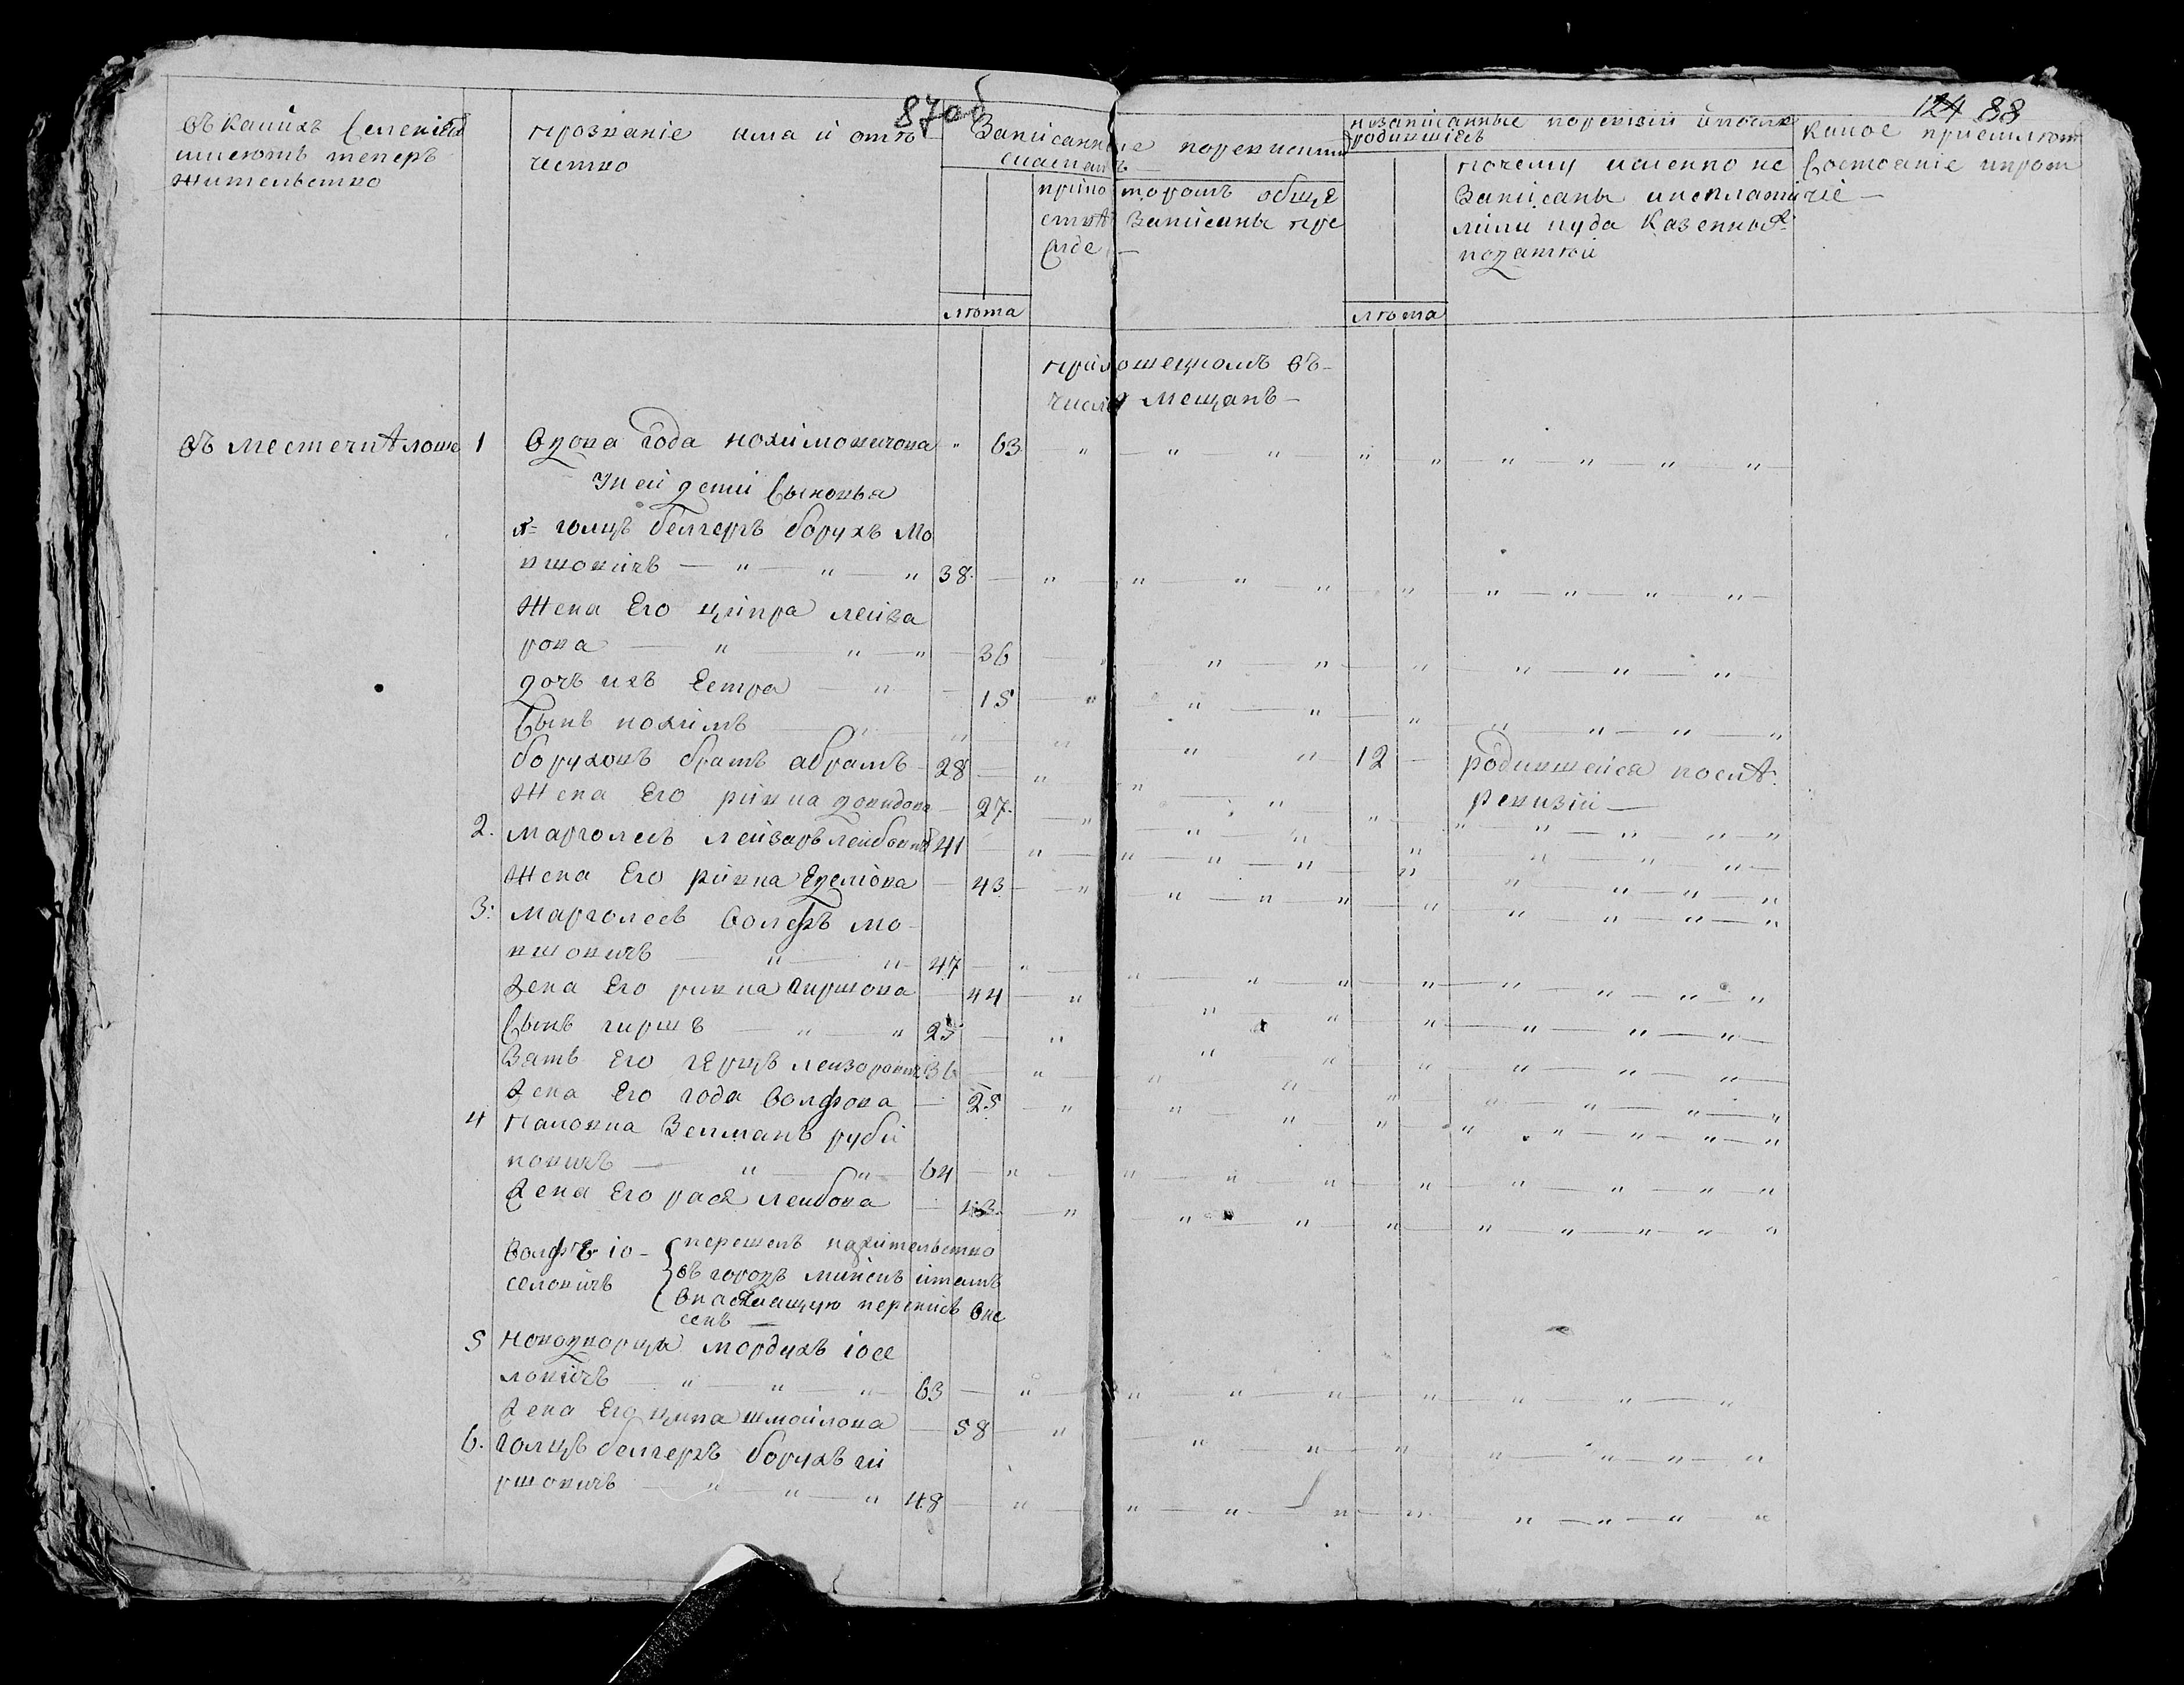 87об
124 88
Въ какихъ Селенiях
имеютъ теперъ
жителъство
прозванiе има и отъ
чество
Записанные поревизким
сказкамъ
прико торомъ обще
ствѣ Записаны пре
сиде
лѣта
незаписанные поревизiи ипосле
родившiесъ
лѣта
почему именно не
Записаны инеплати
лили куда казенных
податки
какое приемлют
Состоянiе ипром
чiе
прилошецкомъ въ
числѣ мещанъ
въ местечкѣ лоше 1 Вдова года нохимовичова " 63
Уней дети Сыновья
я= голцъ белгеръ борухъ Мо
вшовичъ 38
жена Его ципра лейза
рова 36
дочъ ихъ Естра 15
Сынъ нохимъ 12 родившейся послѣ
ревизiи
боруховъ братъ абрамъ 28
жена Его ривка довидова 27
2. марголесъ лейзаръ лейбович 41
жена Его ривка Еселiова 43
3. марголесъ Волфъ мо
вшовичъ 47
жена Его ривка гиршова 44
Сынъ гиршъ 25
Зать Его герцъ лейзорович 36
жена Его года Волфова 25
4 Зелманъ руби
новичъ 64
жена Его рася лейбова 43
Волфъ iо
селовичъ
перешелъ нажителъство
въ городъ минскъ итамъ
внастоящую переписъ вне
сенъ
5 новодворцкi мордухъ iосе
ловичъ 63
жена Его ципа шмойлова 58
6. голцъ белгеръ борухъ ги
ршовичъ 48